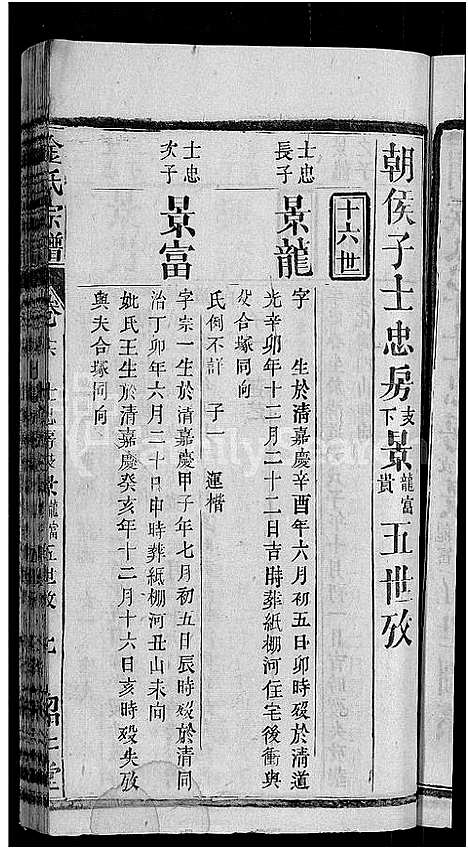 朝侯子士忠房支下景龍富貴五世攷
十六世
士忠長子
景龍
字　生於清嘉慶辛酉年六月初五日卯時殁於清道
光辛卯年十二月二十二日吉時葬紙棚河住宅後衝與
父合塚同向
氏例不詳　子一　運楷
士忠次子
景富
字宗一生於清嘉慶甲子年七月初五日辰時殁於清同
治丁卯年六月二十日申時葬紙棚河丑山未向
妣氏王生於清嘉慶癸亥年十二月十六日亥時殁失攷
與夫合塚同向
金氏宗譜
卷
士忠房
景龍富
五世攷